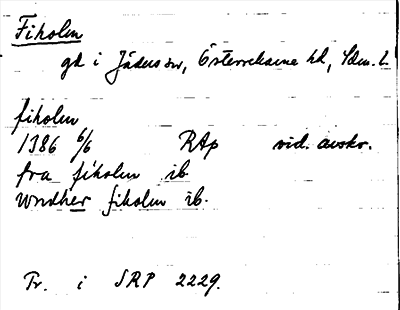 Fiholm
gd i Jäders sn, Österrekarne hd, Sdm. L
fiholm
1386 6/6 RAp vid. avskr.
fra fiholm ib
wndher fiholm ib.
Tr. i SRP 2229.